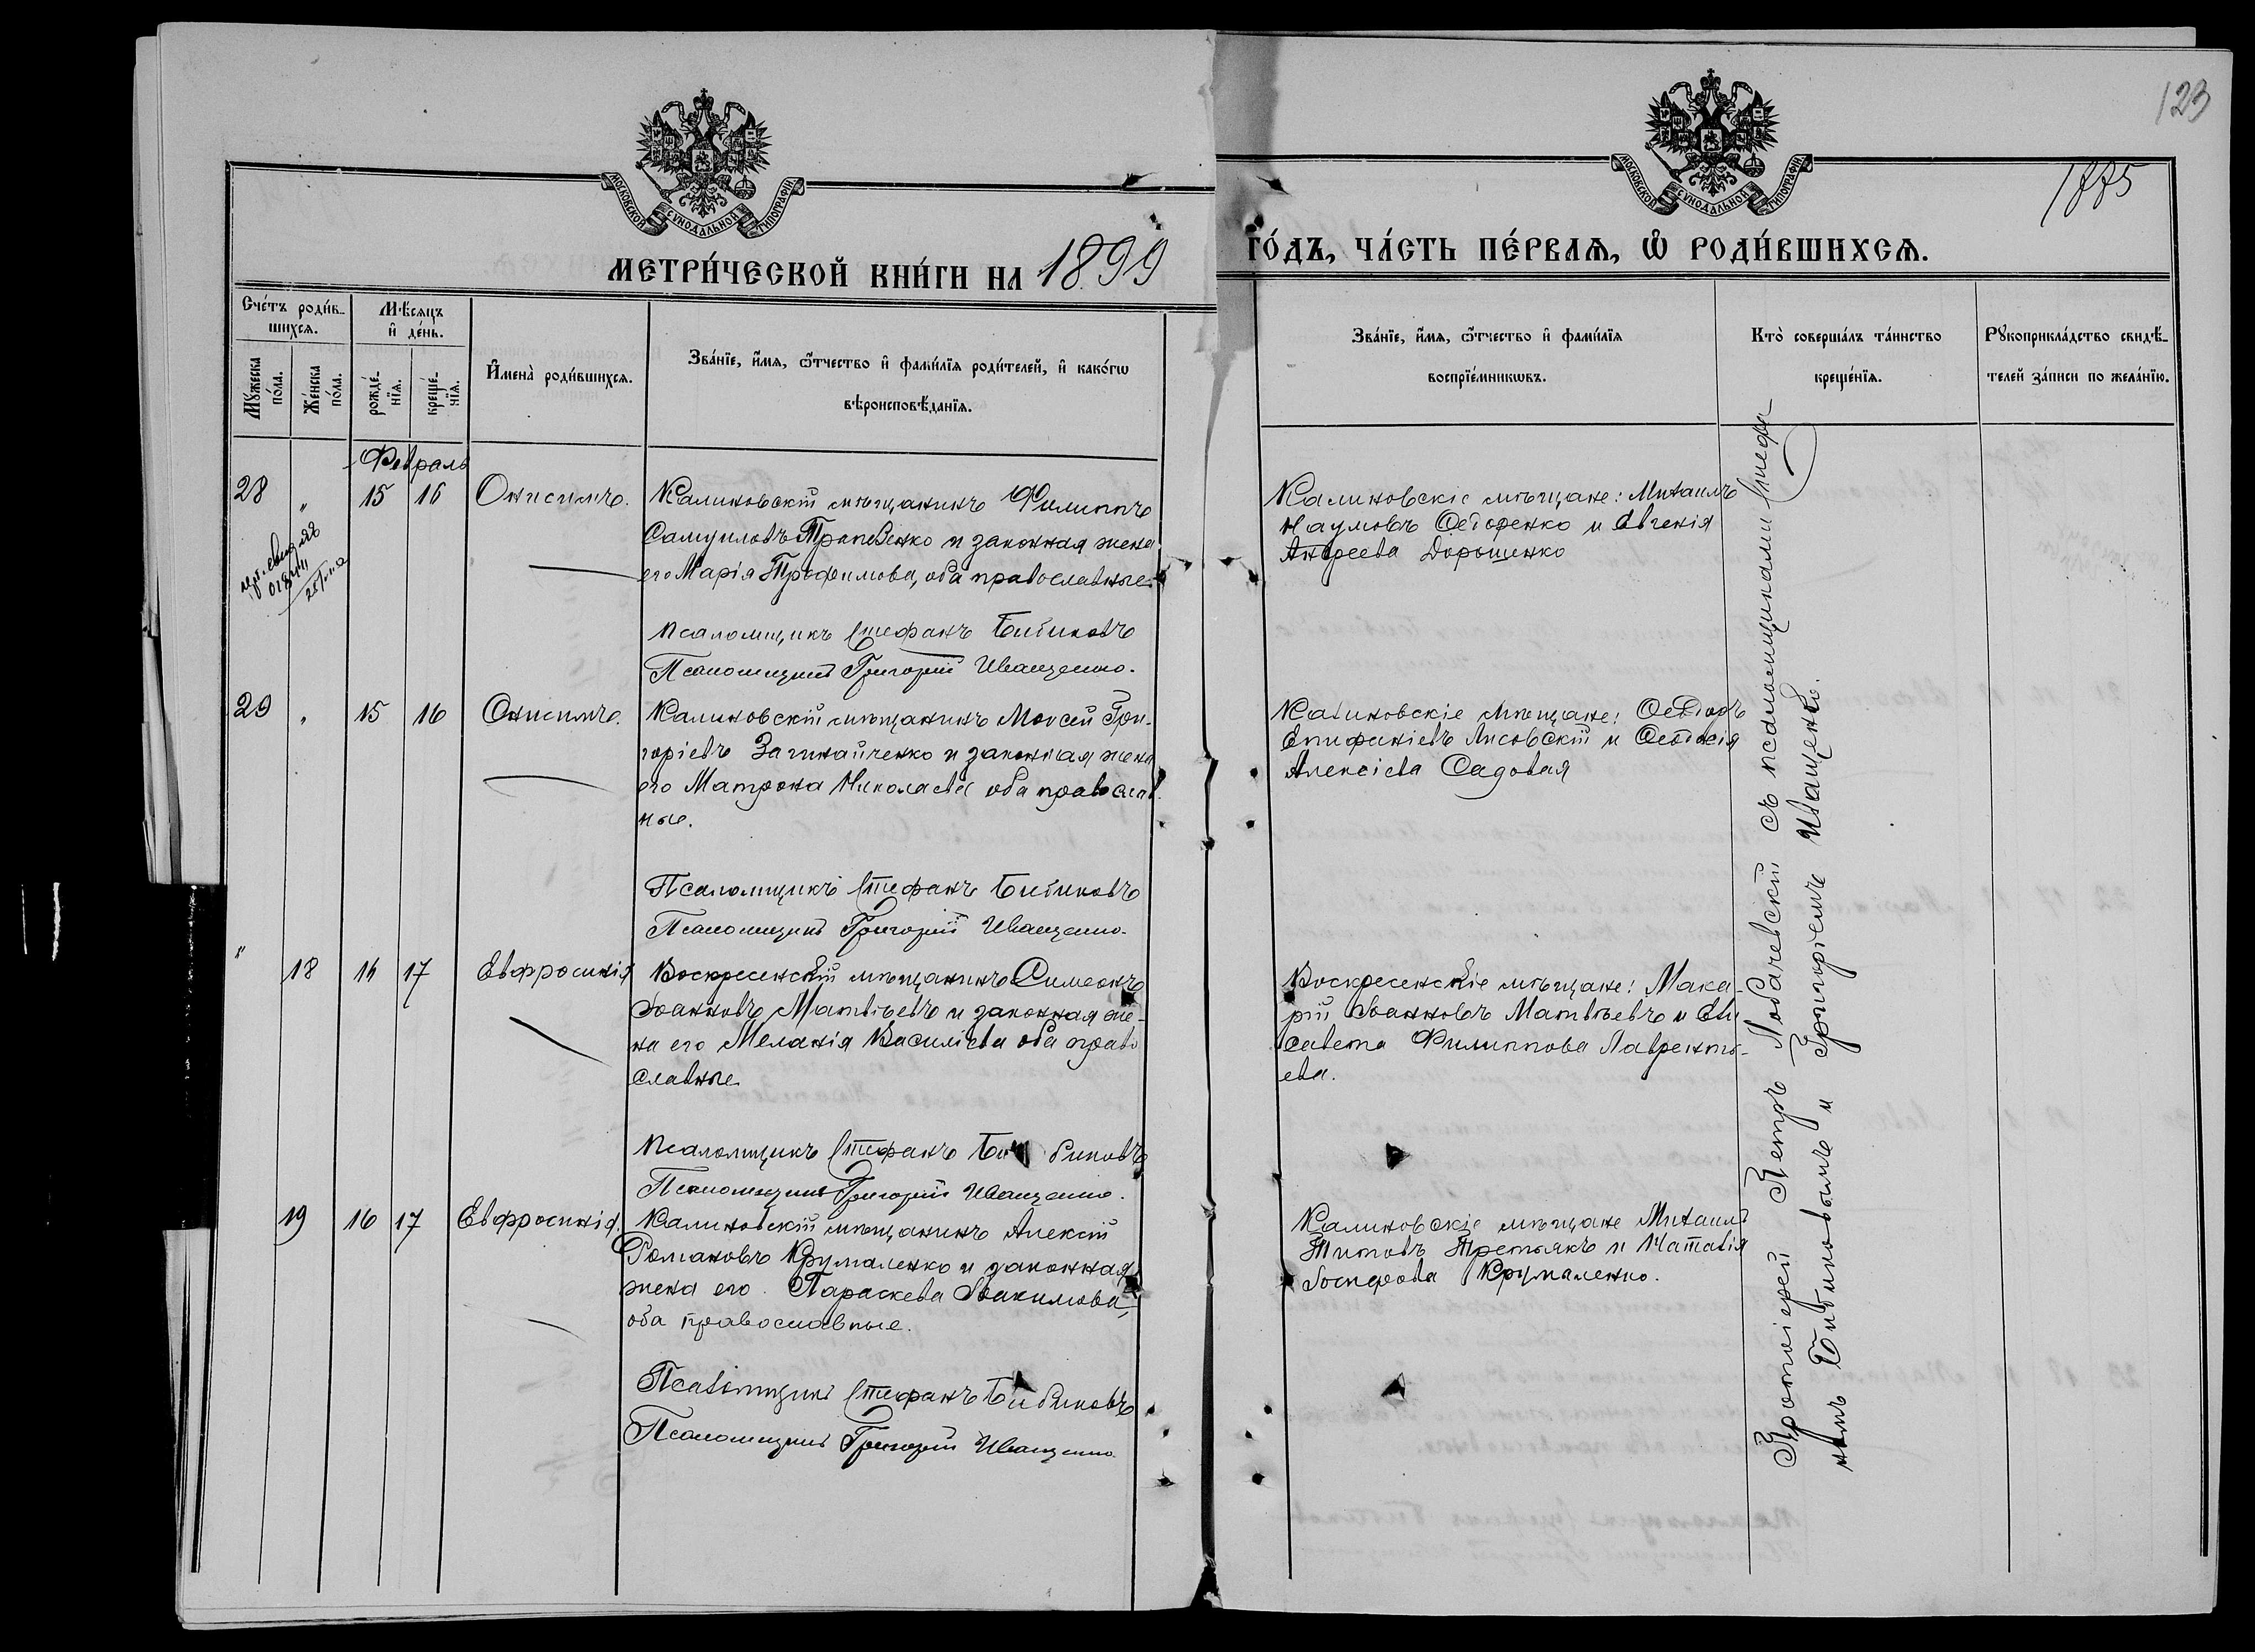 123
1775
МОСКОВСКОЙ СѴНОДАЛЬНОЙ ТИПОГРАФІИ
МОСКОВСКОЙ СѴНОДАЛЬНОЙ ТИПОГРАФІИ
МЕТРИ́ЧЕСКОЙ КНИ́ГИ НА 1899
ГО́ДЪ, ЧА́СТЬ ПЕ́РВАѦ, Ѡ РОДИ́ВШИХСѦ.
Сче́тъ роди́в-
шихсѧ.
Мꙋжеска по́ла.
Же́нска по́ла.
Мѣ́сѧцъ
и҆ де́нь.
рожде́-нїѧ.
креще́-нїѧ.
И҆мена̀ роди́вшихсѧ.
Зва́нїе, и҆́мѧ, ѻ҆́тчество и҆ фами́лїѧ роди́телей, и҆ како́гѡ
вѣроисповѣ́данїѧ.
Зва́нїе, и҆́мѧ, ѻ҆́тчество и҆ фами́лїѧ
воспрїе́мникѡвъ.
Кто̀ соверша́лъ та́инство
креще́нїѧ.
Рꙋкоприкла́дство свидѣ́-
телей за́писи по жела́нїю.
Февраль
28 " 15 16 Онисимъ.
Калиновскій мѣщанинъ Филиппъ
Самуиловъ Трапезенко и законная жена
его Марія Трофимова, оба православные.
Псаломщикъ Стефанъ Бибиковъ
Псаломщикъ Григорій Иващенко.
Калиновскіе мѣщане: Михаилъ
Наумовъ Ѳедоренко и Евгенія
Андреева Дорошенко
29 " 15 16 Онисимъ.
Калиновскій мѣщанинъ Моисей Гри-
горіевъ Загинайченко и законная жена
его Матрона Николаева оба православ-
ные.
Псаломщикъ Стефанъ Бибиковъ
Псаломщикъ Григорій Иващенко.
Калиновскіе мѣщане: Ѳеодоръ
Епифаніевъ Лисовскій и Ѳеодосія
Алексіева Садовая
" 18 14 17 Евфросинія
Воскресенскій мѣщанинъ Симеонъ
Іоанновъ Матвѣевъ и законная же-
на его Меланія Василіева оба право
славные
Псаломщикъ Стефанъ Бибиковъ
Псаломщикъ Григорій Иващенко.
Воскресенскіе мѣщане: Мака-
рій Іоанновъ Матвѣевъ и Ели
савета Филиппова Лаврентъ-
ева.
19 16 17 Евфросинія.
Калиновскій мѣщанинъ Алексій
Романовъ Крумаленко и законная
жена его Параскева Іоакимова,
оба православные.
Псаломщикъ Стефанъ Бибиковъ
Псаломщикъ Григорій Иващенко.
Калиновскіе мѣщане Михаилъ
Титовъ Третьякъ и Наталія
Іосифова Крумаленко.
Протоіерей Петръ Лобачевскій съ псаломщиками Стефа
номъ Бибиковымъ и Григоріемъ Иващенко.